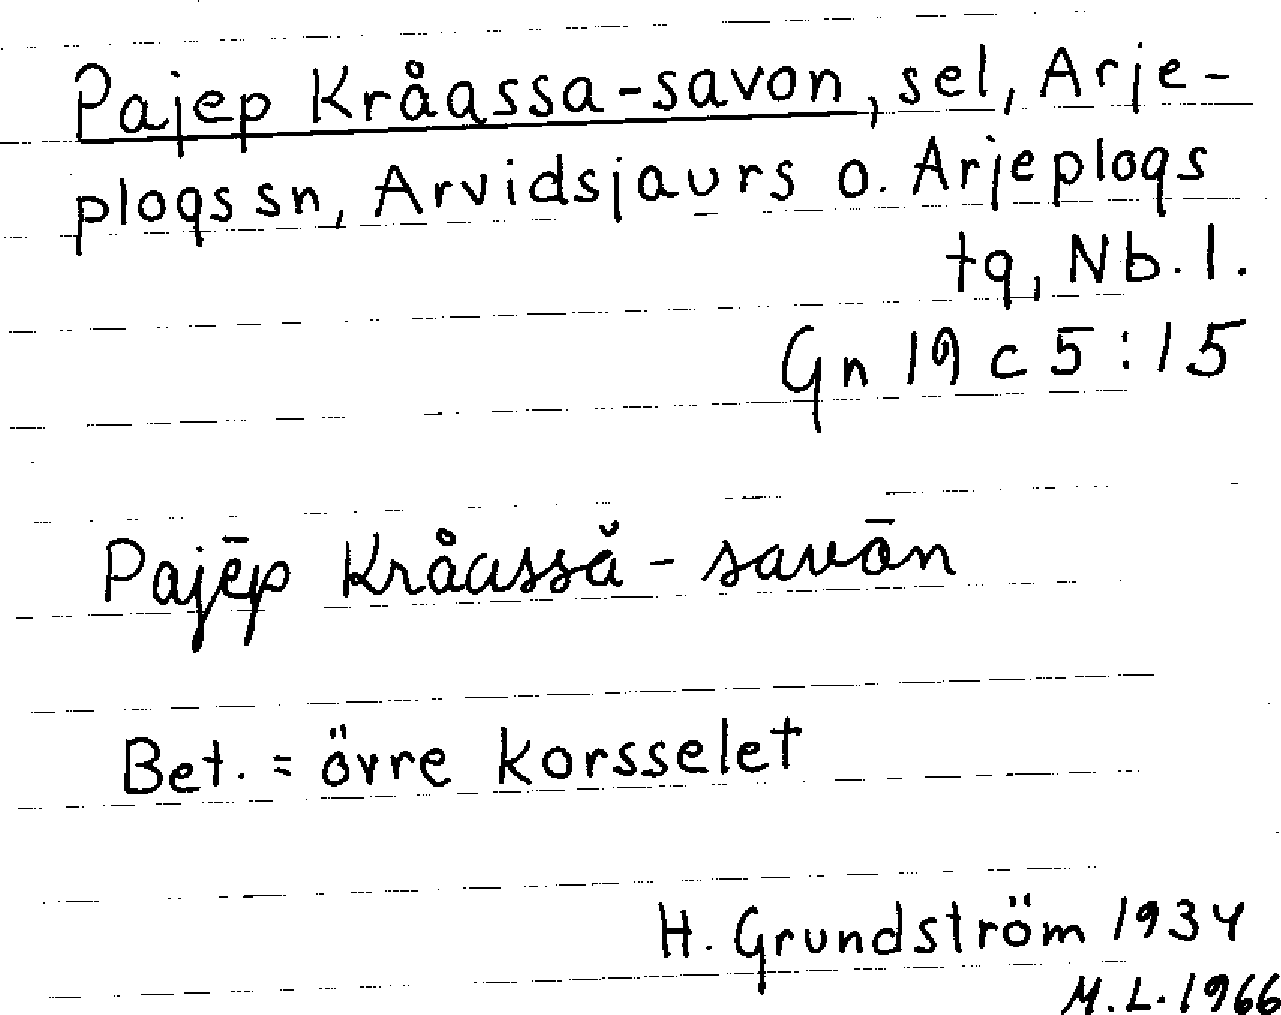 Pajep Kråassa-savon, sel, Arje-
plogs sn, Arvidsjaurs o. Arjeplogs
tg, Nb. l.
Gn 19 c 5:15
Pajēp Kråassă - savōn
Bet. = övre korsselet
H. Grundström 1934
M.L. 1966